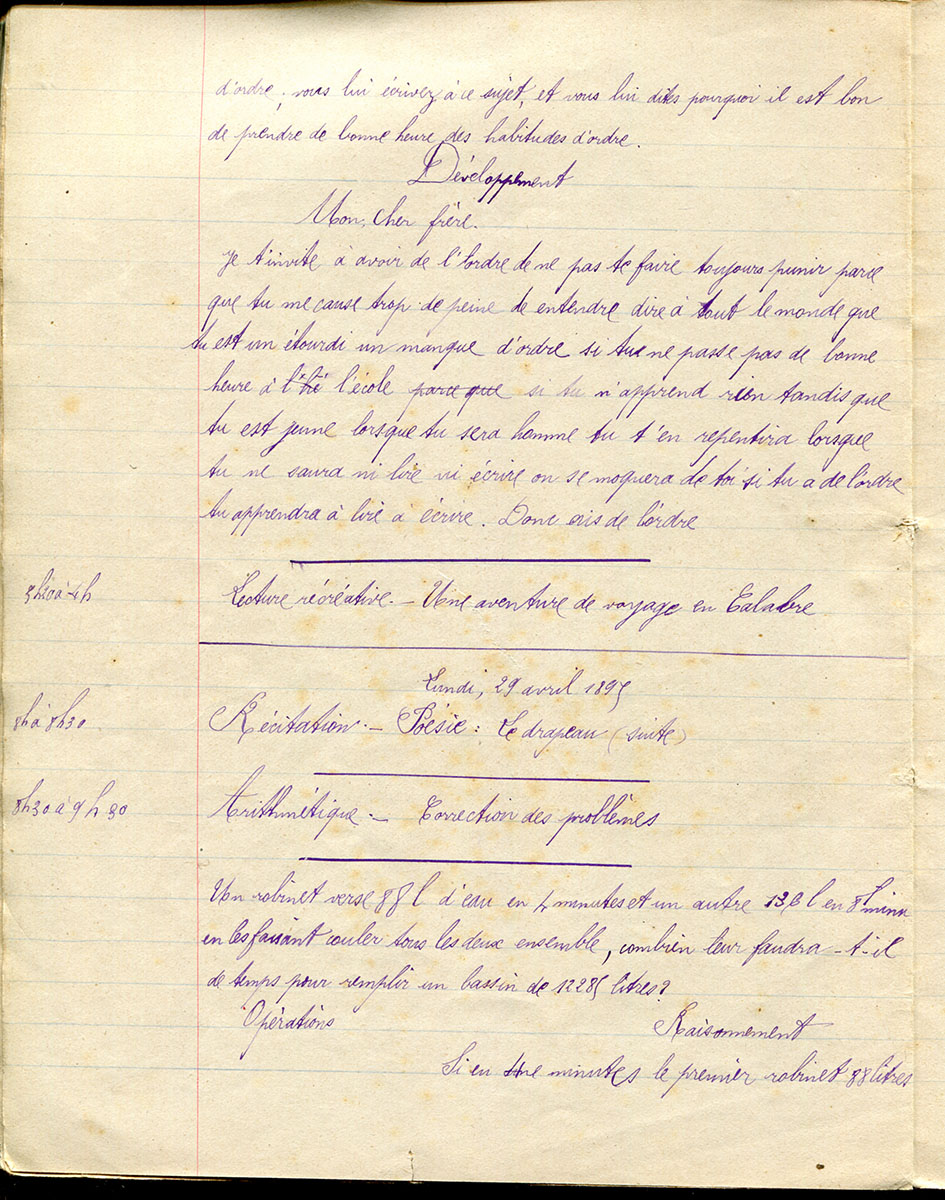 d'ordre, vous lui écrivez à ce sujet, et vous lui dites pourquoi il est bon
de prendre de bonne heure des habitudes d'ordre.
Développement
Mon, Cher frère.
Je t'invite à avoir de l'lordre de ne pas te faire toujours punir parce
que tu me cause trop de peine de entendre dire à tout le monde que
tu est un étourdi un manque d'ordre si tu ne passe pas de bonne
heure à l'école parce que si tu n'apprend rien tandis que
tu est jeune lorsque tu sera homme tu t'en repentira lorsque
tu ne saura ni lire ni écrire on se moquera de toi si tu a de l'ordre
tu apprendra à lire a écrire. Donc ais de l'ordre
3h30 à 4h Lecture récréative. – Une aventure de voyage en Calabre
Lundi, 29 avril 1895
8h à 8h30 Récitation. – Poésie : Le drapeau (suite)
8h30 à 9h30 Arithmétique. – Correction des problèmes
Un robinet verse 88 l d'eau en 4 minutes et un autre 136 l en 8 minu
en les faisant couler tous les deux ensemble, combien leur faudra-t-il
de temps pour remplir un bassin de 1285 litres?
Opérations Raisonnement
Si en 4 minutes le premier robinet 88 litres